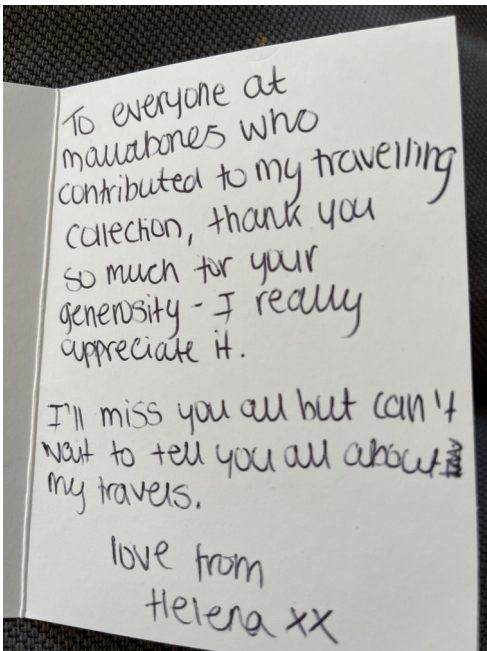 To everyone at
mauabones who
contributed to my travelling
collection, thank you
so much for your
generosity - I really
appreciate it.
I'll miss you all but can't
wait to tell you all about
my travels.
love from
Helena xx